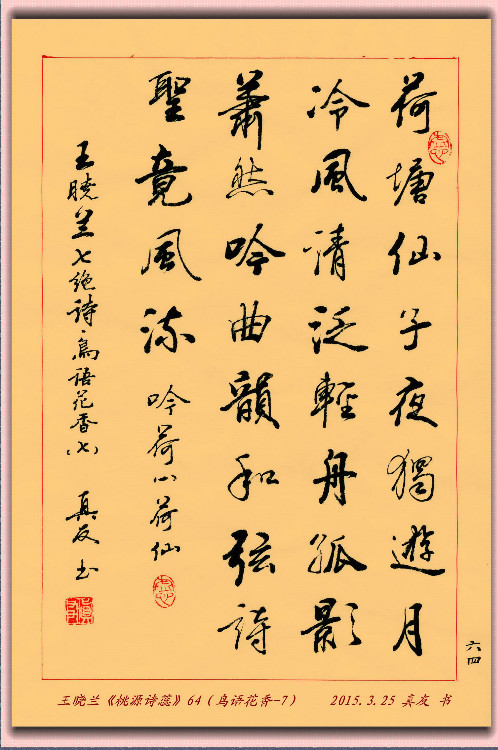 荷塘仙子夜獨遊月
冷風清泛輕舟孤影
蕭然吟曲韻和弦詩
聖竟風流 吟荷 荷仙
王曉兰七绝詩·鳥語花香(七) 真友书
六四
王晓兰《桃源诗蕊》64（鸟语花香-7） 2015.3.25 真友 书